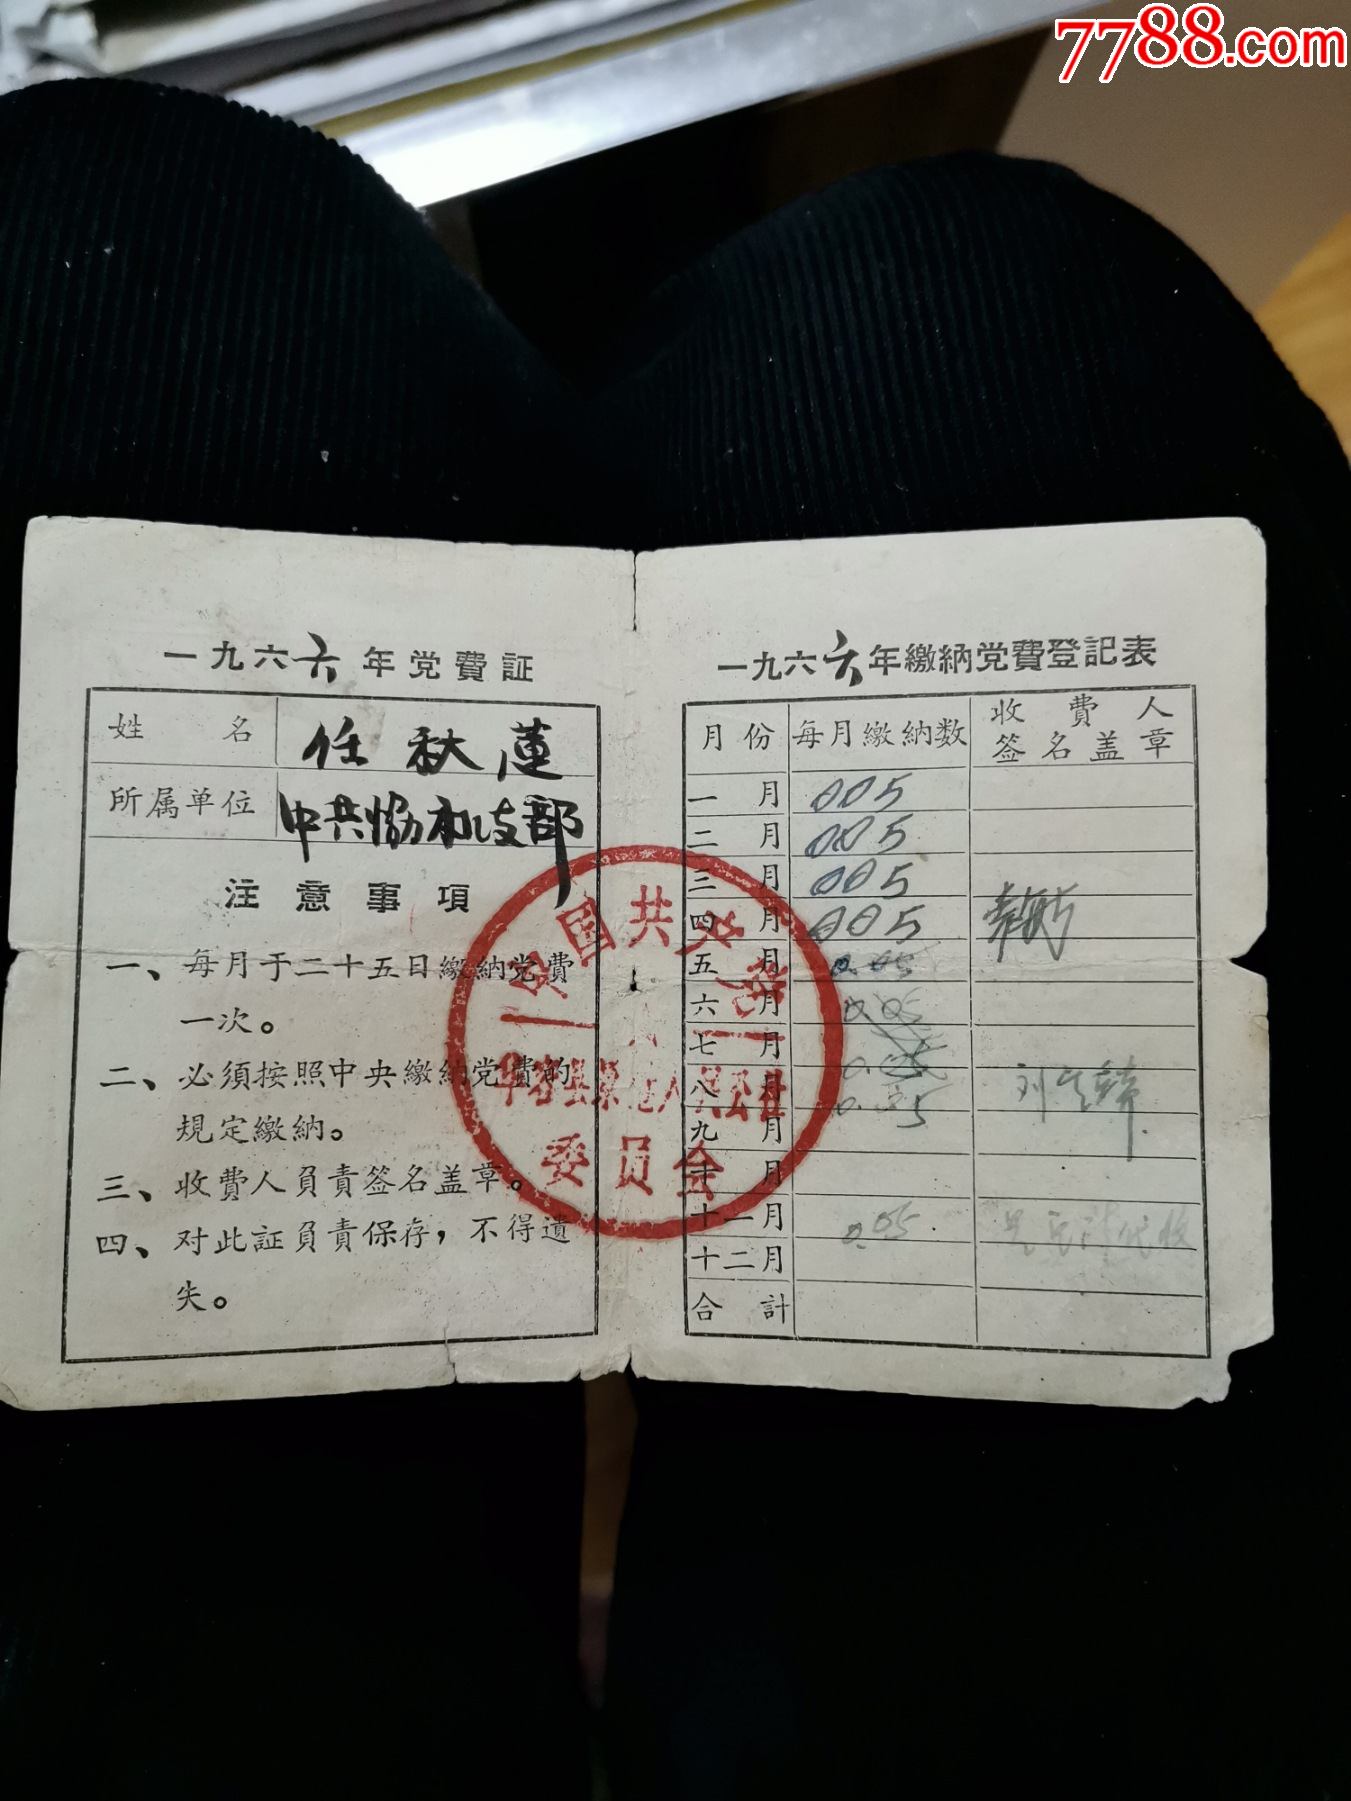 7788.com
一九六六年党費証
姓 名 任秋蓮
所属单位 中共协和支部
注意事項
一、每月于二十五日缴納党費
一次。
二、必須按照中央缴納党費的
規定缴納。
三、收費人負責签名盖章。
四、对此証負責保存，不得遺
失。
一九六六年缴納党費登記表
月份 每月缴納数 收費人
签名盖章
一月 005
二月 005
三月 005
四月 005
五月 0.05
六月 0.05
七月 0.05
八月 0.05
九月
十月
十一月 0.05
十二月
合計
中国共产党
华容县 人民公社
委員会